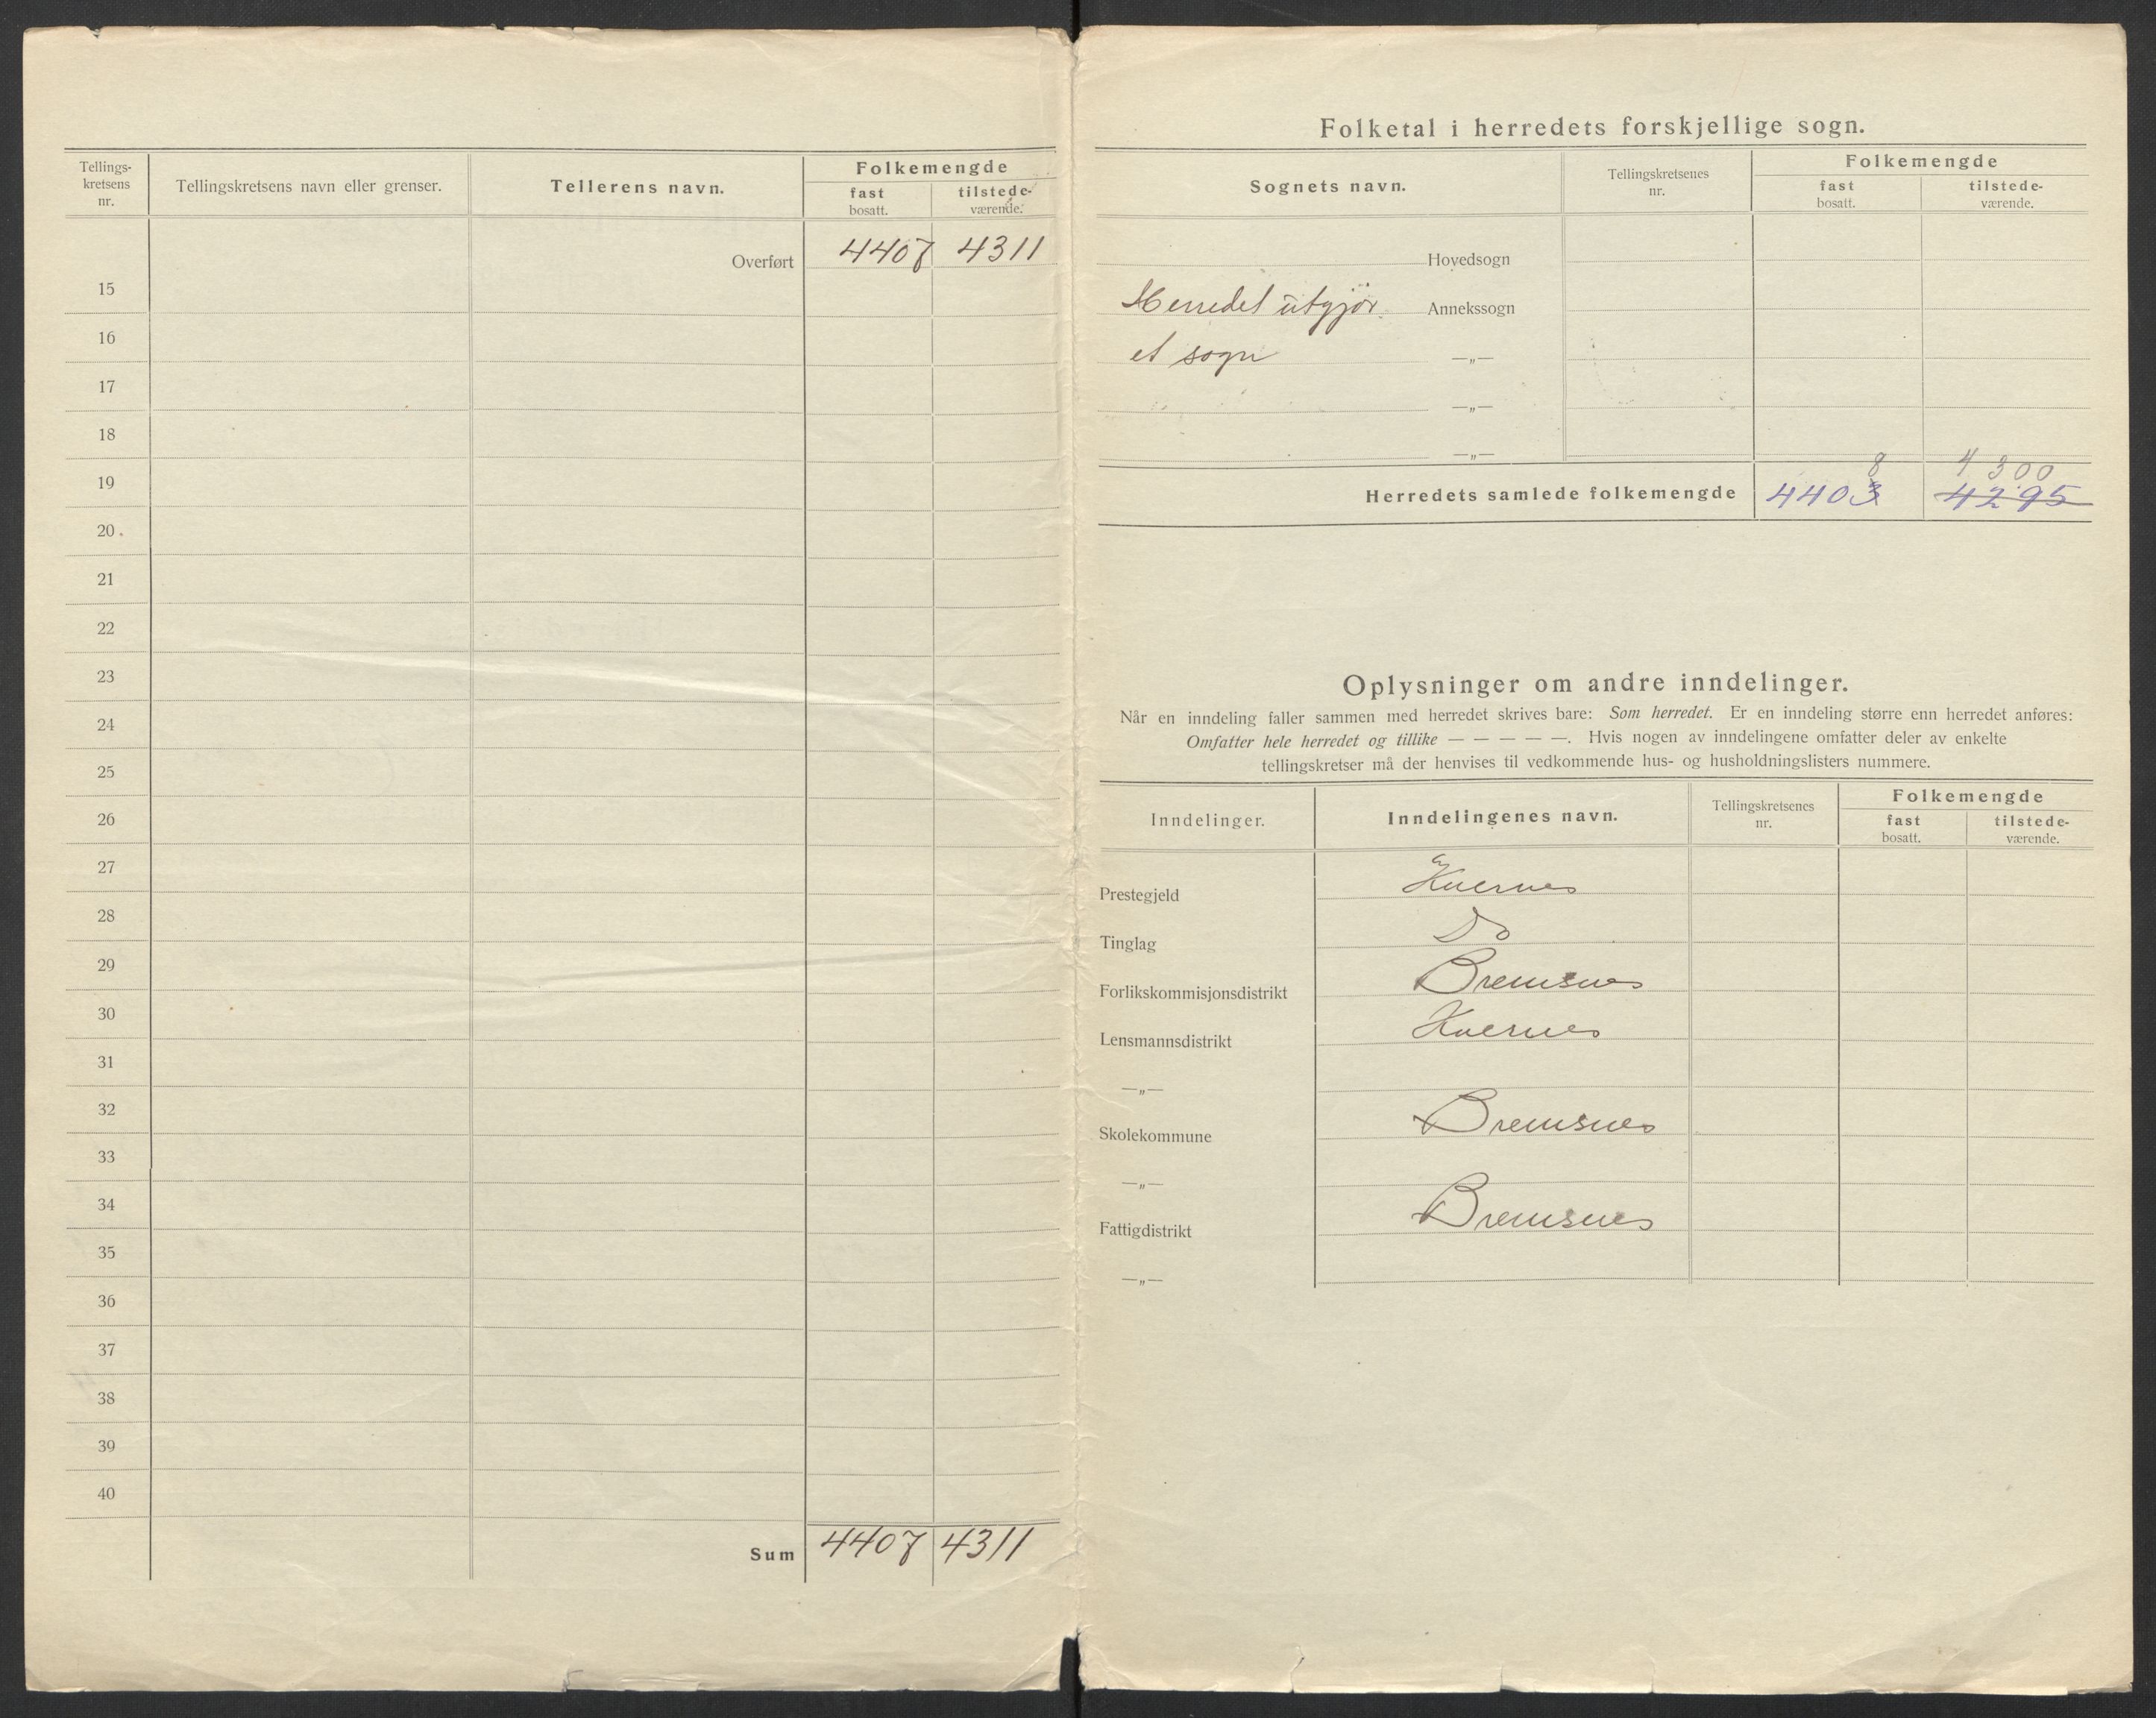 Tellings-
kretsens
nr.
Tellingskretsens navn eller grenser.
Tellerens navn.
Folkemengde
fast
bosatt.
tilstede-
værende.
Overført 4407 4311
15
16
17
18
19
20
21
22
23
24
25
26
27
28
29
30
31
32
33
34
35
36
37
38
39
40
Sum 4407 4311
Folketal i herredets forskjellige sogn.
Sognets navn.
Tellingskretsenes
nr.
Folkemengde
fast
bosatt.
tilstede-
værende.
Hovedsogn
Herredet utgjør Annekssogn
et sogn —„—
—„—
—„—
8 4300
Herredets samlede folkemengde 4403 4295
Oplysninger om andre inndelinger.
Når en inndeling faller sammen med herredet skrives bare: Som herredet. Er en inndeling større enn herredet anføres:
Omfatter hele herredet og tillike — — — — —. Hvis nogen av inndelingene omfatter deler av enkelte
tellingskretser må der henvises til vedkommende hus- og husholdningslisters nummere.
Inndelinger.
Inndelingenes navn.
Tellingskretsenes
nr.
Folkemengde
fast
bosatt.
tilstede-
værende.
Prestegjeld Kvernes
Tinglag Do
Forlikskommisjonsdistrikt Bremsnes
Lensmannsdistrikt Kvernes
—„—
Skolekommune Bremsnes
—„—
Fattigdistrikt Bremsnes
—„—